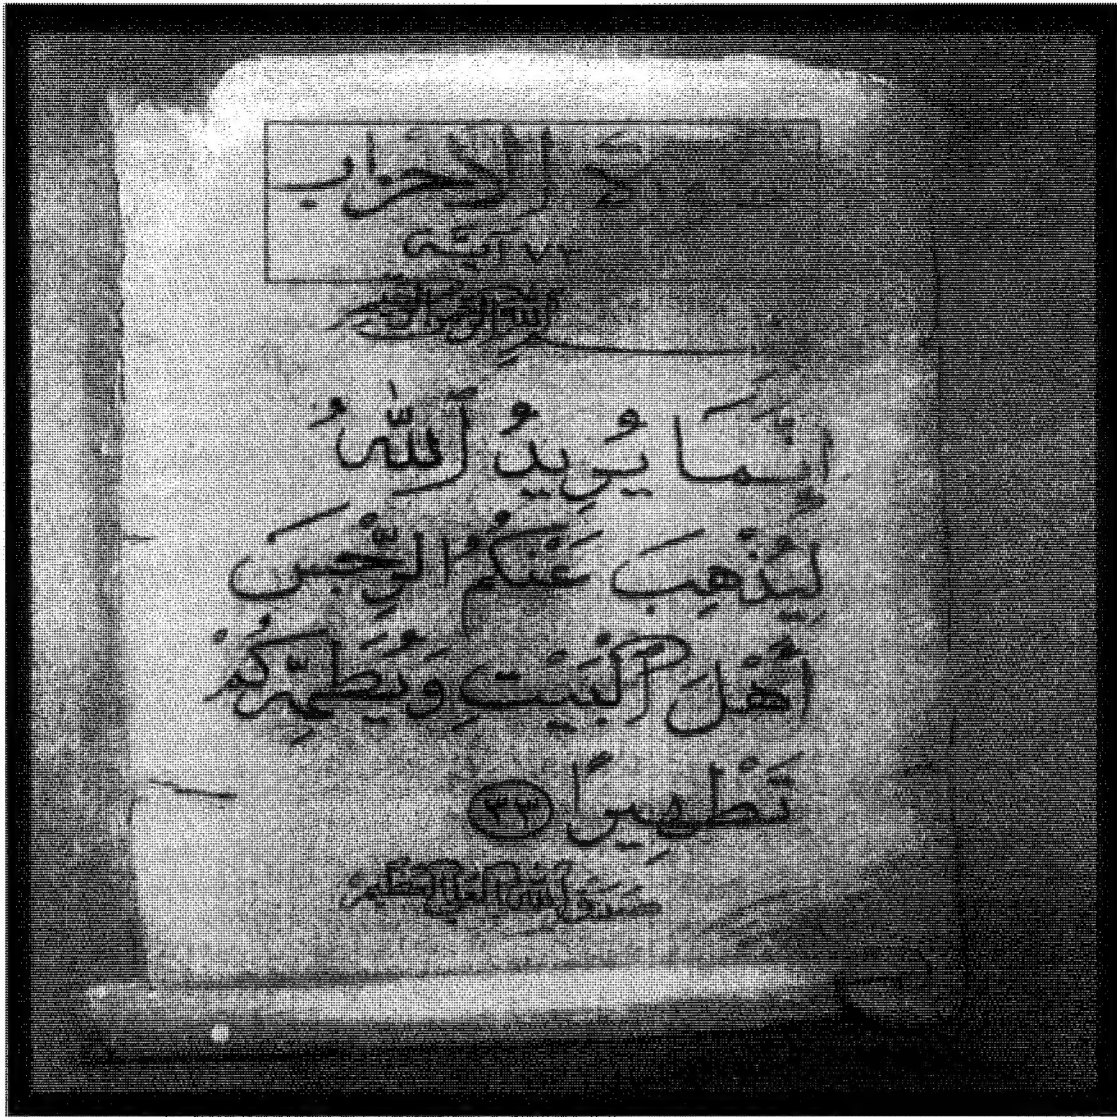 سورة الاحزاب
٧٣ آية
بسم الله الرحمن الرحيم
إِنَّمَا يُرِيدُ ٱللَّهُ
لِيُذْهِبَ عَنْكُمُ الرِّجْسَ
أَهْلَ ٱلْبَيْتِ وَيُطَهِّرَكُمْ
تَطْهِيرًا ٣٣
صدق الله العلي العظيم